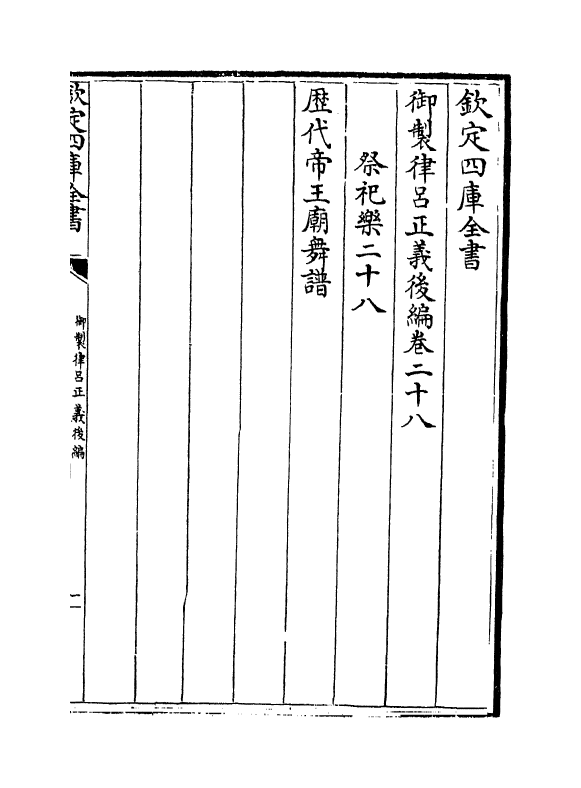 欽定四庫全書
御製律呂正義後編卷二十八
祭祀樂二十八
歴代帝王廟舞譜
欽定四庫全書
御製律呂正義後編